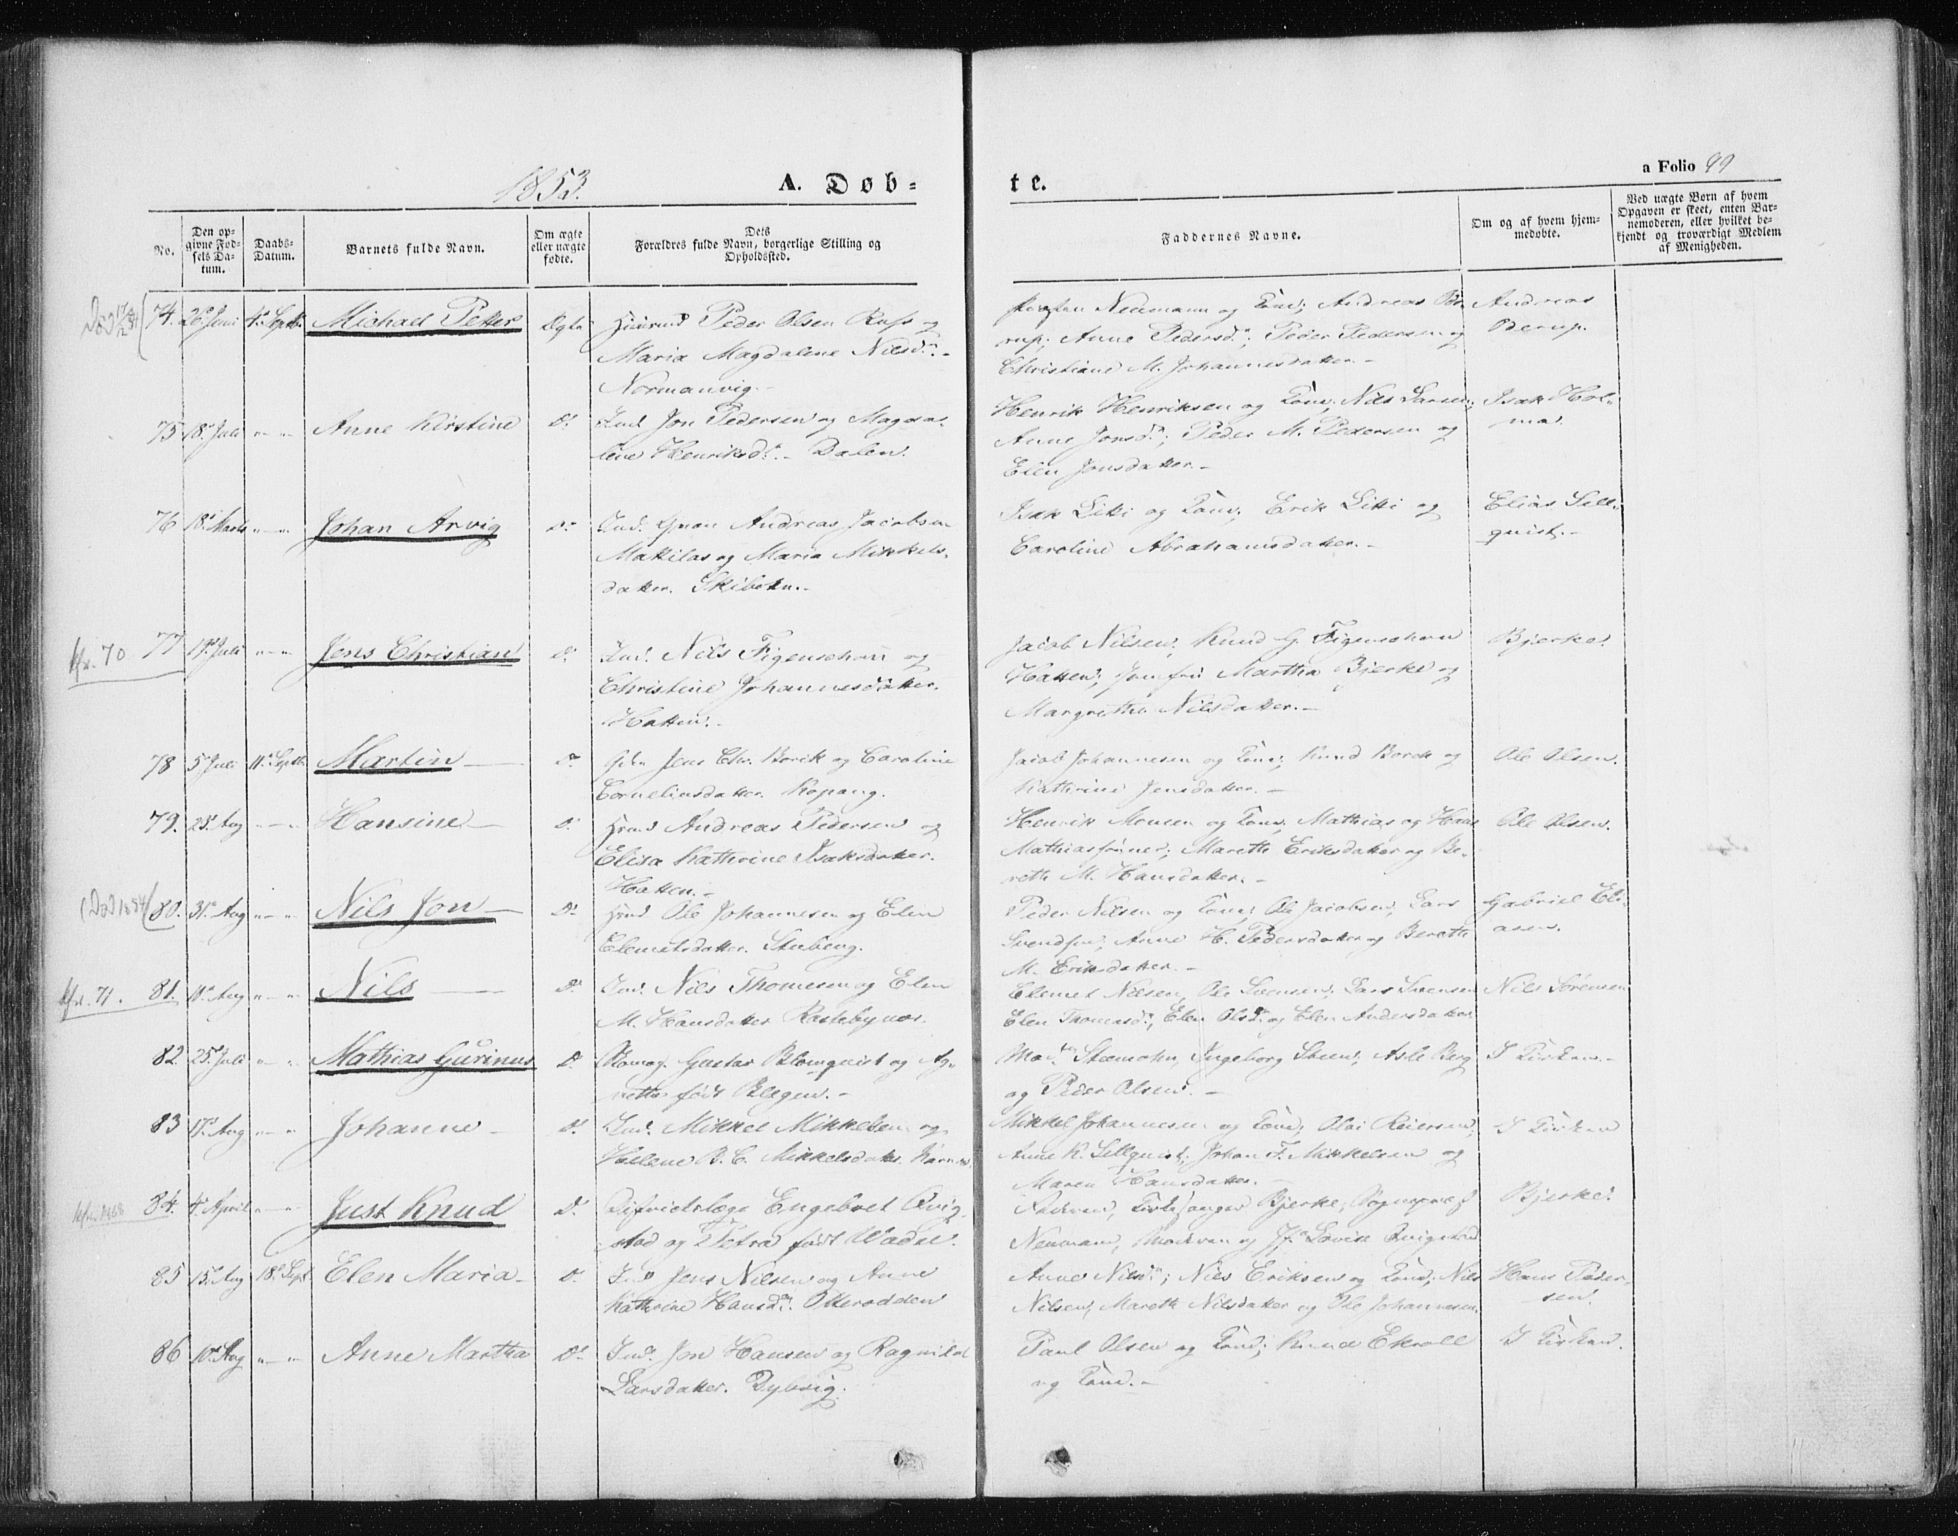 1853.
A. Døb-
te.
a Folio 99
No.
Den op-
givne Fød-
sels Da-
tum.
Daabs-
Datum.
Barnets fulde Navn.
Om ægte
eller uægte
fødte.
Dets
Forældres fulde Navn, borgerlige Stilling og
Opholdssted.
Faddernes Navne.
Om og af hvem hjem-
medøbte.
Ved uægte Børn af hvem
Opgaven er skeet, enten Bar-
nemoderen, eller hvilket be-
kjendt og troværdigt Medlem
af Menigheden.
74 26 Juni 4 Septbr Michael Petter Ægte Peder Olsen Russ og
Maria Magdalene Nilsd.
Normanvig.
Neumann og Kone; Andreas Bo-
rup; Anne Pedersd.; Peder Pedersen og
Christiane M. Johannesdatter.
Andreas
Borup.
75 18 Juli Anne Kirstine Do Ind. Jon Pedersen og Magda-
lene Henriksd. Dalen.
Henrik Henriksen og Kone; Nils Larsen;
Anne Jonsd.; Peder M. Pedersen og
Elen Jonsdatter.
Isak Hol-
ma.
76 18 Marts Johan Arvig Do Ind. Andreas Jacobsen
Mattilas og Maria Mikkels-
datter. Skibotn.
Isak Litti og Kone; Erik Litti og
Caroline Abrahamsdatter.
Elias Sell-
quist.
No. 70 77 19 Juli Jens Christian Do Ind. Nils Figenschou og
Christine Johannesdatter.
Hatten.
Jacob Nilsen; Knud G. Figenschou
Hatten; Jomfru Martha Bjerke og
Margrethe Nilsdatter.
Bjerke.
78 5 Juli 11 Septb. Martin Do Jens Chr. Borch og Caroline
Corneliusdatter. Kopang.
Jacob Johannesen og Kone; Knud Borch og
Kathrine Jensdatter.
Ole Olsen.
79. 28 Aug Hansine Do Hmd Andreas Pedersen og
Elisa Kathrine Isaksdatter.
Hatten.
Henrik Monsen og Kone; Mathias og Hans
Mathiassønner; Marethe Eriksdatter og Be-
rethe M. Hansdatter.
Ole Olsen.
(Død 1854 80. 31 Aug Nils Jon Do Hmd Ole Johannesen og Elen
Elemetsdatter. Stubeng.
Peder Nilsen og Kone; Ole Jacobsen; Lars
Svendsen; Anne H. Pedersdatter og Berethe
M. Eriksdatter.
Gabriel Eli-
asen.
No. 71. 81. 10 Aug Nils Do Ind. Nils Thomesen og Elen
M. Hansdatter Rastebynæs.
Elemet Nilsen, Ole Svensen; Lars Svensen
Elen Thomasd.; Elen Olsd. og Elen Andersdatter
Nils Sörensen
82 25 Juli Mathias Gurinus Do Gustav Blomquist og Ag-
nethe født Blegen.
Stamsøhn, Ingeborg Steen; Asle Berg
og Peder Olsen.
I Kirken.
83 17 Aug Johanne Do Ind. Mikkel Mikkelsen og
Helene B. C. Mikkelsdatter.
Mikkel Johannesen og Kone; Olai Reiersen;
Anne K. Sellquist; Johan F. Mikkelsen og
Maren Hansdatter.
I Kirken
84. 4 April Just Knud Do Districtslæge Engebret Qvig-
stad og Petra født Wadel.
Kirkesanger Bjerke, Sogneprest
Neumann, Lovise Qvigstad
Bjerke.
85 15 Aug 18 Sept. Elen Maria Do Ind. Jens Nilsen og Anne
Kathrine Hansd. Otterodden
Anne Nilsd.; Nils Eriksen og Kone; Nils
Nilsen; Marethe Nilsdatter og Ole Johannesen.
Hans Peder-
sen.
86 10 Aug Anne Martha Do Ind. Jon Hansen og Ragnild
Larsdatter. Dybvig.
Paul Olsen og Kone; Knud Ekroll
og Kone.
I Kirken.